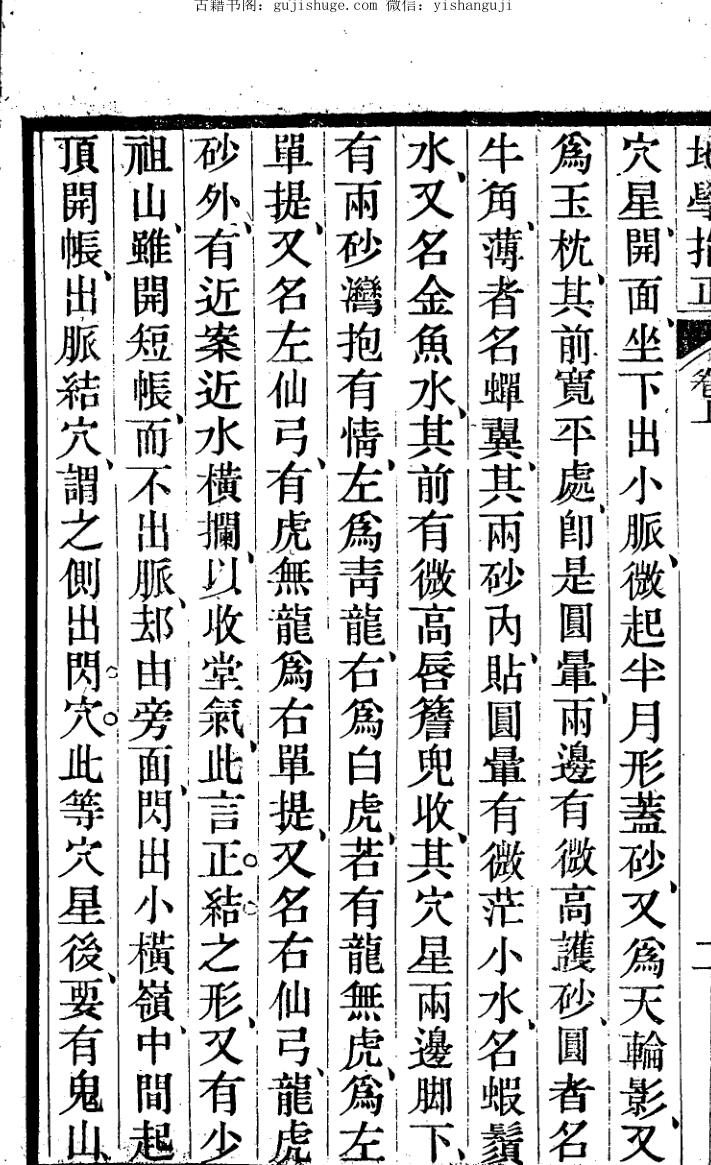 古籍书阁：gujishuge.com 微信：yishanguji
地學指正 卷上 二
穴星開面、坐下出小脈、微起半月形蓋砂、又爲天輪影、又
爲玉枕、其前寬平處、卽是圓暈、兩邊有微高護砂、圓者名
牛角、薄者名蟬翼、其兩砂內、貼圓暈有微茫小水、名蝦鬚
水、又名金魚水、其前有微高唇簷兜收、其穴星兩邊脚下、
有兩砂灣抱有情、左爲靑龍、右爲白虎、若有龍無虎、爲左
單提、又名左仙弓、有虎無龍爲右單提、又名右仙弓、龍虎
砂外、有近案近水橫攔、以收堂氣、此言正結之形、又有少
祖山、雖開短帳、而不出脈、却由旁面、閃出小橫嶺、中間起
頂開帳、出脈結穴、謂之側出閃穴。此等穴星後、要有鬼山、